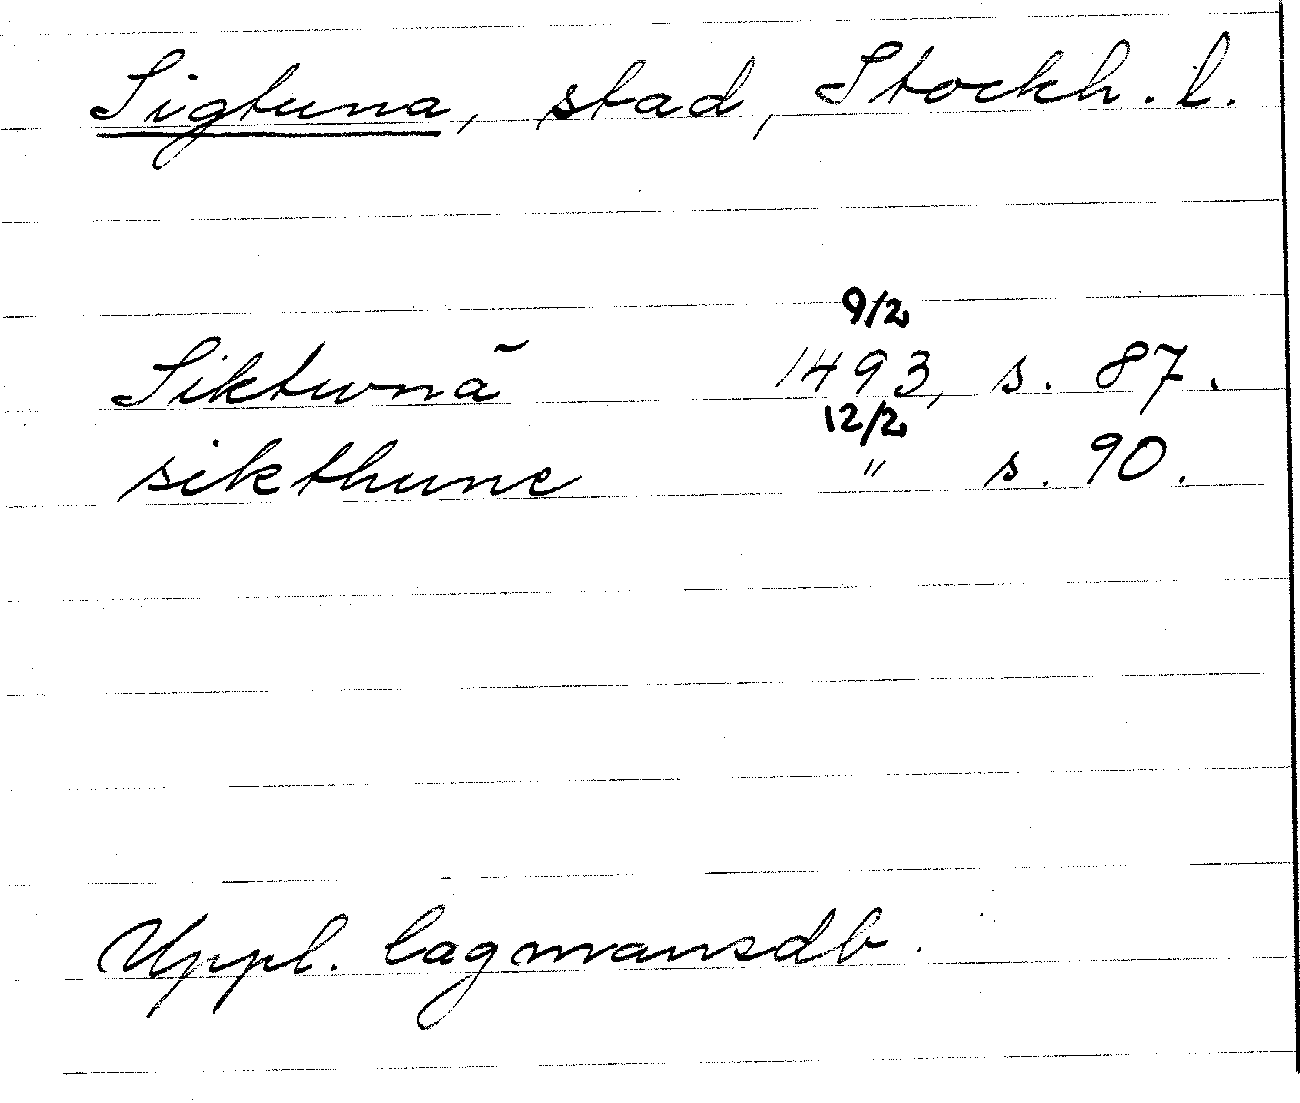 Sigtuna, stad, Stockh. l.
9/2
Siktwnã 1493, s. 87.
12/2
sikthune " s. 90.
Uppl. lagmansdb.